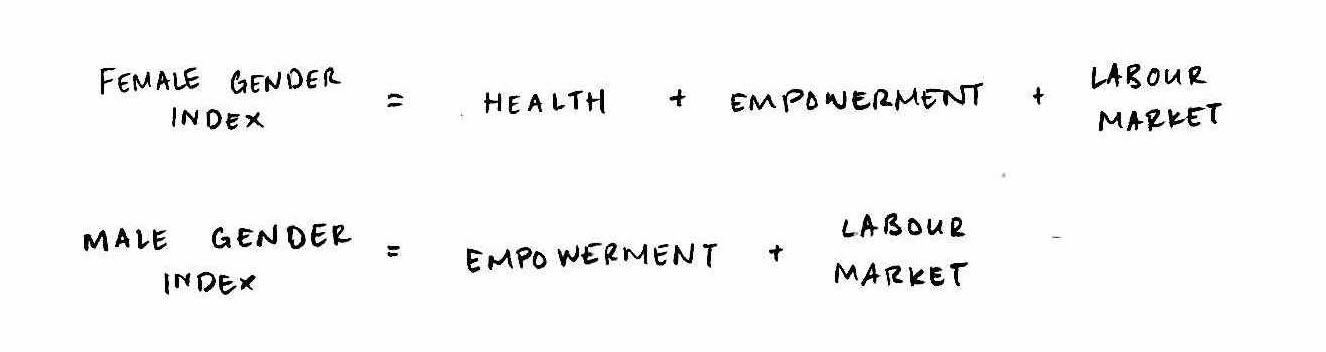 FEMALE GENDER INDEX = HEALTH + EMPOWERMENT + LABOUR MARKET
MALE GENDER INDEX = EMPOWERMENT + LABOUR MARKET